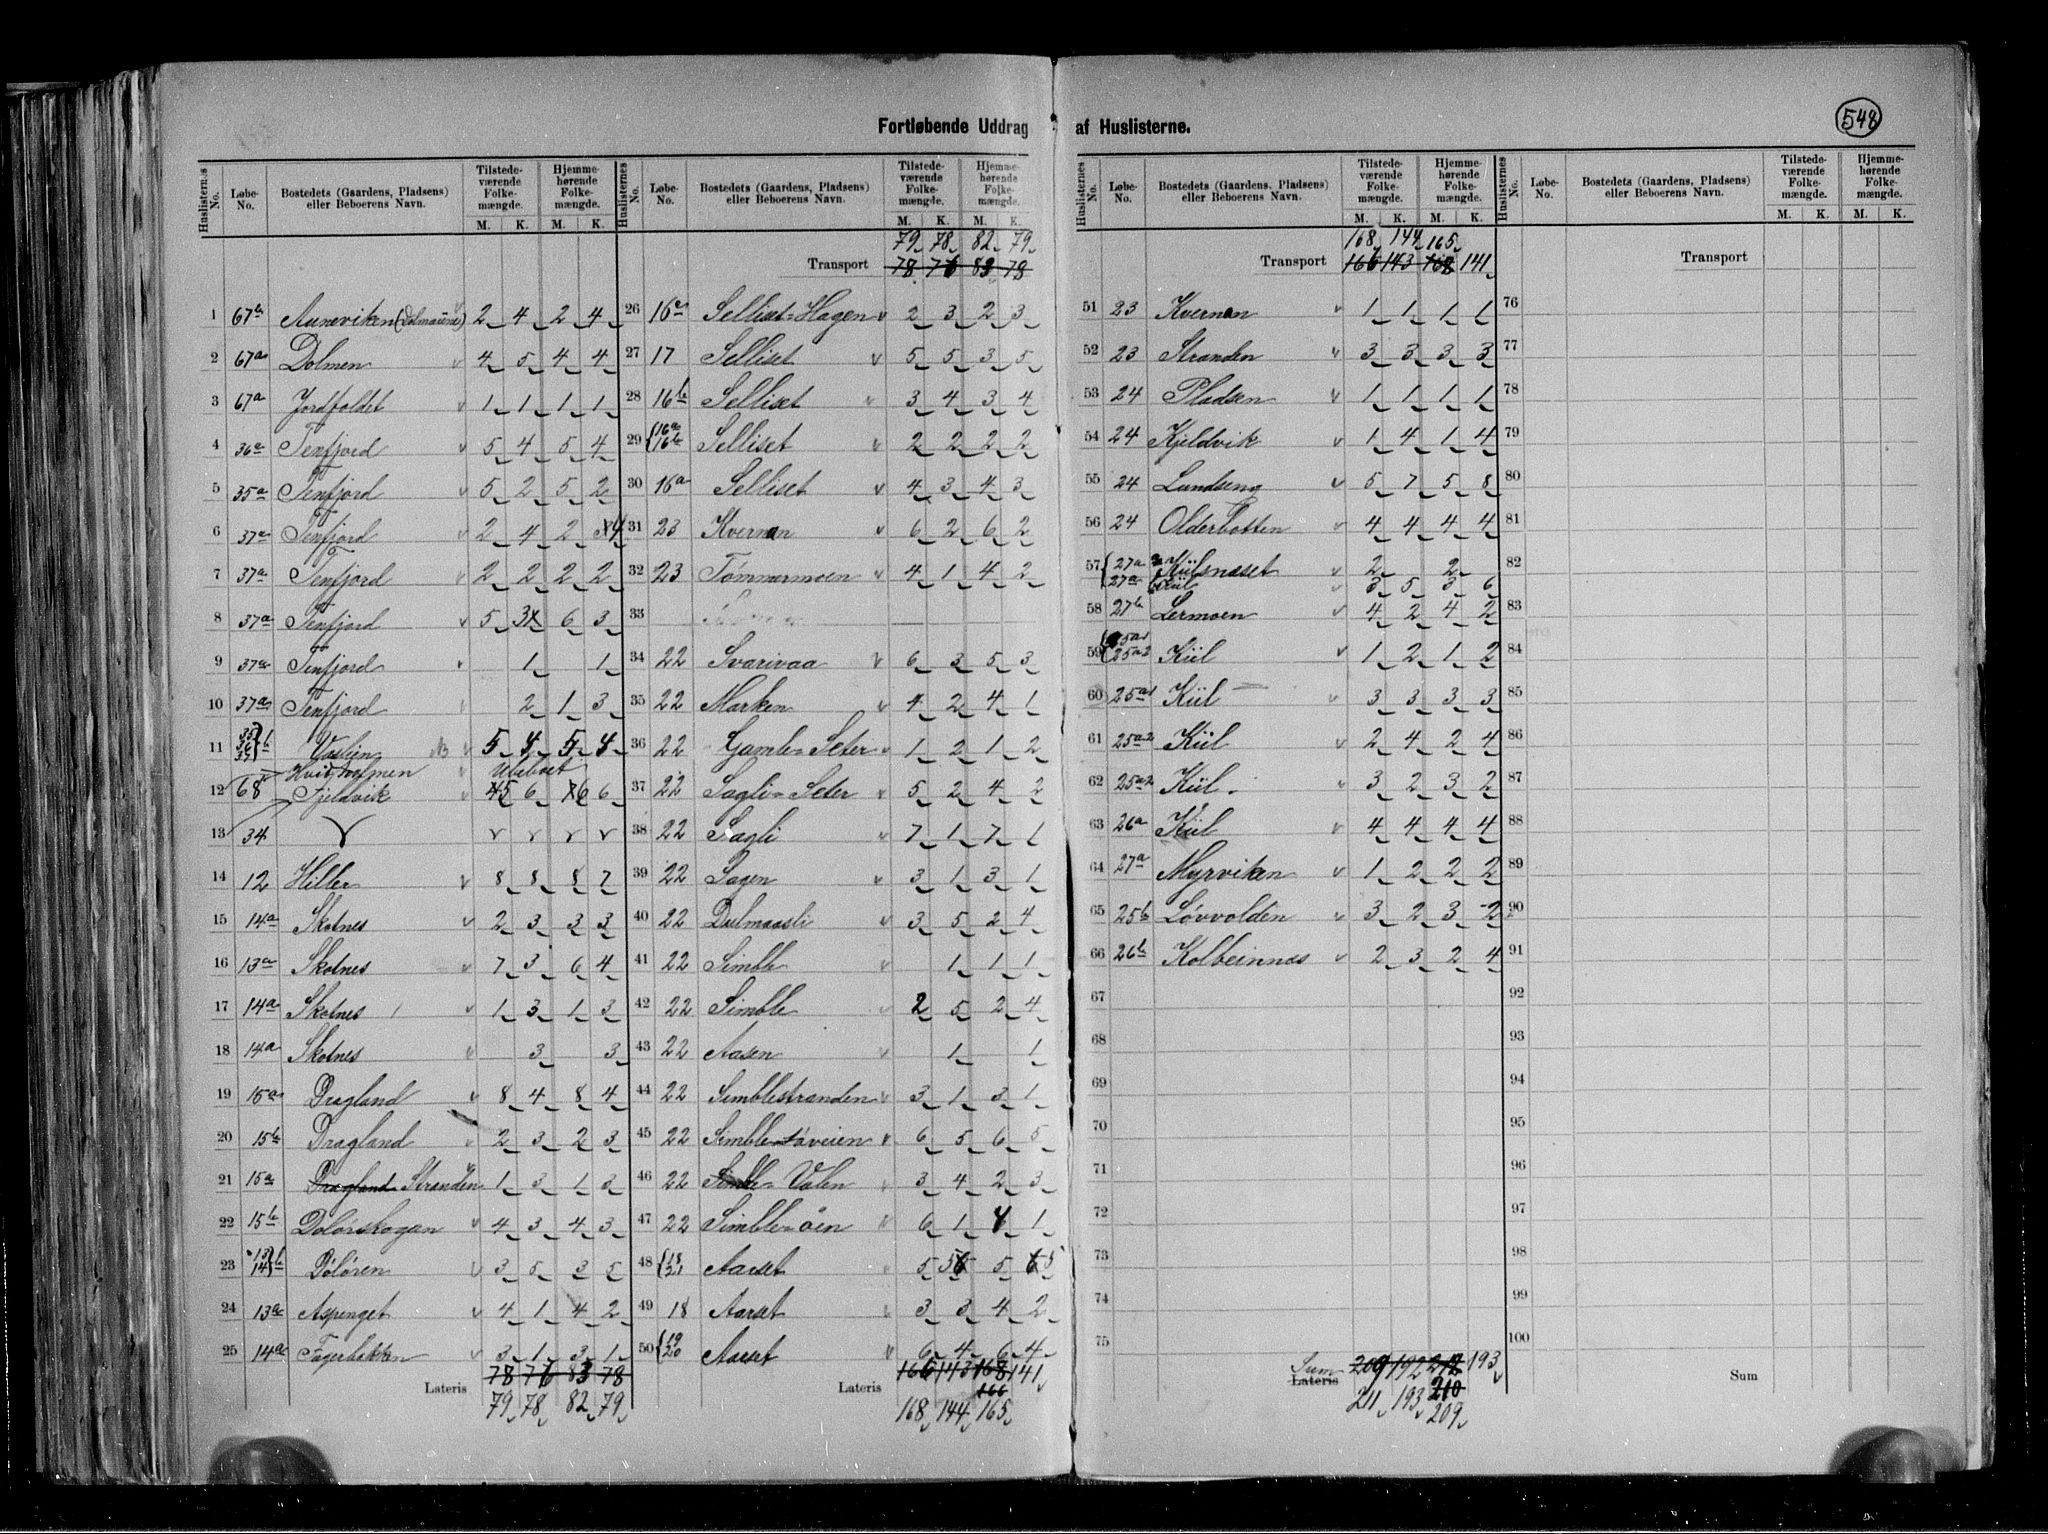 548
Fortløbende Uddrag af Huslisterne.
Huslisternes No. Løbe-No. Bostedets (Gaardens, Pladsens) eller Beboerens Navn. Tilstedeværende Folkemængde. M. K. Hjemmehørende Folkemængde. M. K.
1 67b Auneviken (Dolmaüne) 2 4 2 4
2 67a Dolmen 4 5 4 4
3 67a Jordfaldet 1 1 1 1
4 36a Tenfjord 5 4 5 4
5 35a Tenfjord 5 2 5 2
6 37a Tenfjord 2 4 2 4
7 37a Tenfjord 2 2 2 2
8 37a Tenfjord 5 3 6 3
9 37a Tenfjord 1 1
10 37a Tenfjord 2 1 3
11 35 36 37 b Vaslien 5 4 5 4
Hvitholmen Ubeboet
12 68 Fjeldvik 5 6 6 6
13 34
14 12 Hiller 8 8 8 7
15 14a Skotnes 2 3 3 3
16 13a Skotnes 7 3 6 4
17 14a Skotnes 1 3 1 3
18 14a Skotnes 3 3
19 15a Dragland 8 4 8 4
20 15b Dragland 2 3 2 3
21 15a Dragland Stranden 1 3 1 3
22 15b Dolørskogan 4 3 4 3
23 13 14 b Døløren 3 5 3 5
24 13a Aspenget 4 1 4 2
25 14a Fagerbakken 3 1 3 1
78 76 83 78
Lateris
79 78 82 79
Huslisternes No. Løbe-No. Bostedets (Gaardens, Pladsens) eller Beboerens Navn. Tilstedeværende Folkemængde. M. K. Hjemmehørende Folkemængde. M. K.
79 78 82 79
Transport 78 76 83 78
26 16a Selliset-Hagen 2 3 2 3
27 17 Selliset 5 5 3 5
28 16b Selliset 3 4 3 4
29 16a 16b Selliset 2 2 2 2
30 16a Selliset 4 3 4 3
31 23 Kvernan 6 2 6 2
32 23 Tømmermoen 4 1 4 2
33
34 22 Svarivaa 6 3 5 3
35 22 Marken 4 2 4 1
36 22 Gamle-Seter 1 2 1 2
37 22 Sagli-Seter 5 2 4 2
38 22 Sagli 7 1 7 1
39 22 Sagen 3 1 3 1
40 22 Dalmaasli 3 5 2 4
41 22 Simble 1 1 1
42 22 Simble 2 5 2 4
43 22 Aasen 1 1
44 22 Simblestranden 3 1 3 1
45 22 Simble-Løveien 6 5 6 5
46 22 Simble-Valen 3 4 2 3
47 22 Simble-øin 6 1 4 1
48 18 21 Aarset 5 5 5 5
49 18 Aarset 3 3 4 2
50 19 20 Aarset 6 4 6 4
166 143 168 141
Lateris 166
168 144 165
Huslisternes No. Løbe-No. Bostedets (Gaardens, Pladsens) eller Beboerens Navn. Tilstedeværende Folkemængde. M. K. Hjemmehørende Folkemængde. M. K.
168 144 165
Transport 166 143 168 141
51 23 Kvernan 1 1 1 1
52 23 Stranden 3 3 3 3
53 24 Pladsen 1 1 1 1
54 24 Kjeldvik 1 4 1 4
55 24 Lundseng 5 7 5 8
56 24 Olderbotten 4 4 4 4
57 27a Kiilsnæset 2 2
27a Kiil 3 5 3 6
58 27b Lermoen 4 2 4 2
59 25a1 25a2 Kiil 1 2 1 2
60 25a1 Kiil 3 3 3 3
61 25a2 Kiil 2 4 2 4
62 25a2 Kiil 3 2 3 2
63 26a Kiil 4 4 4 4
64 27a Myrviken 1 2 2 2
65 25b Løvvolden 3 2 3 2
66 26b Kolbeinnes 2 3 2 4
67
68
69
70
71
72
73
74
75
Sum 209 192 212 193
Lateris
211 193 210
209
Huslisternes No. Løbe-No. Bostedets (Gaardens, Pladsens) eller Beboerens Navn. Tilstedeværende Folkemængde. M. K. Hjemmehørende Folkemængde. M. K.
Transport
76
77
78
79
80
81
82
83
84
85
86
87
88
89
90
91
92
93
94
95
96
97
98
99
100
Sum